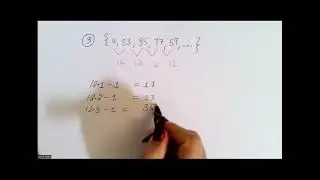 ③ {11, 23, 35, 47, 59, ...}
12 12 12 12
12·1 - 1 = 11
12·2 - 1 = 23
12·3 - 1 = 35